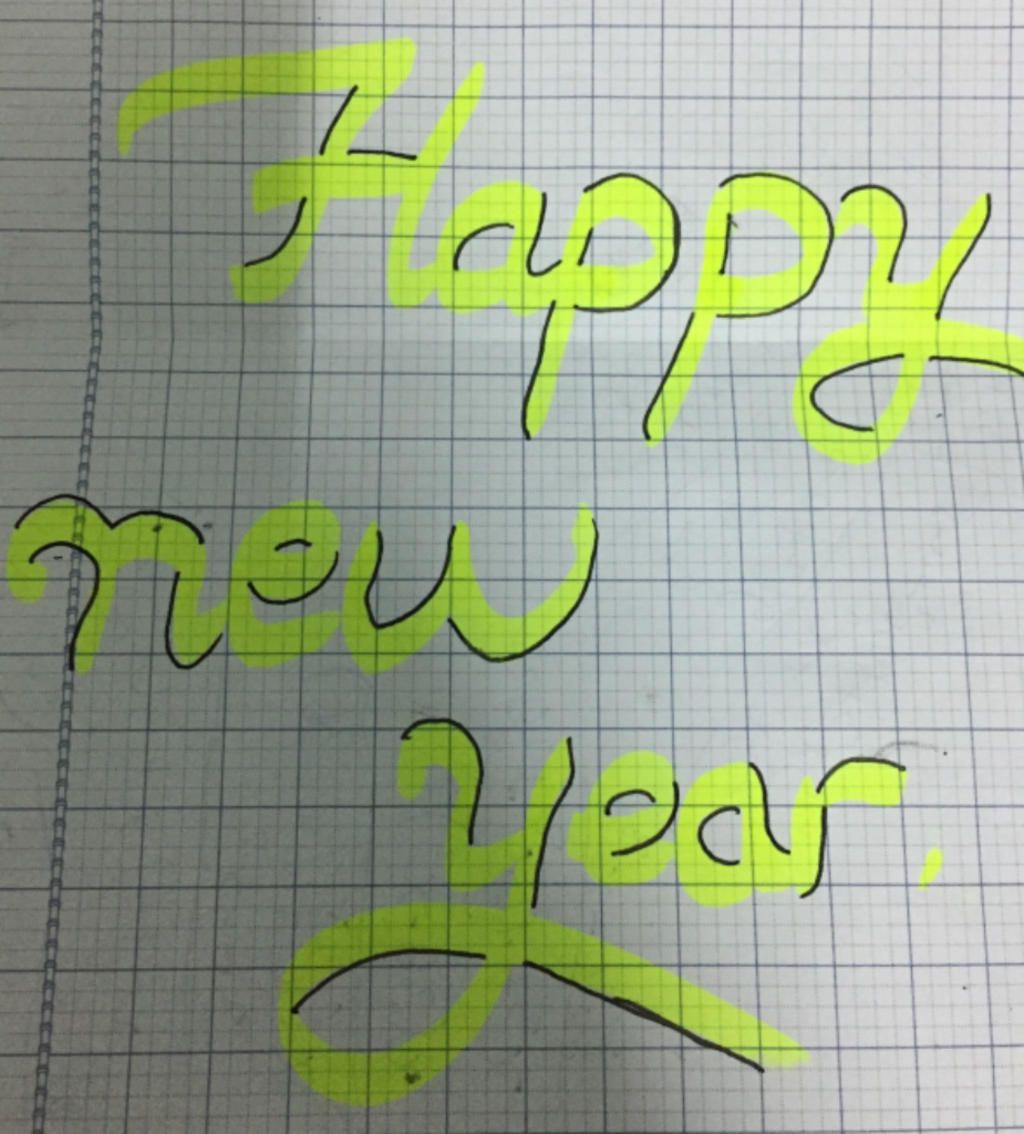 Happy
new
year.